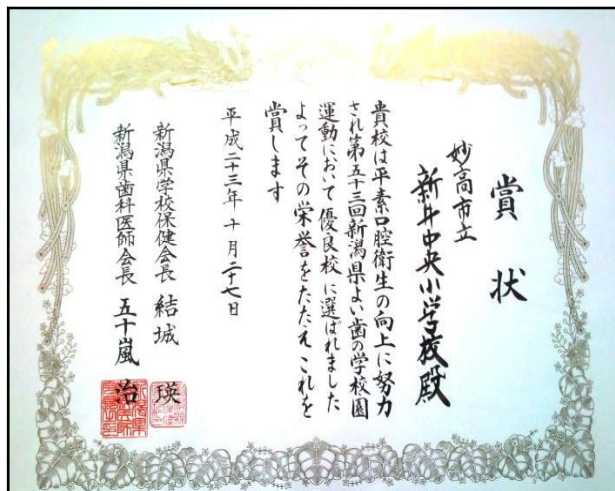 賞状
妙高市立
新井中央小学校殿
貴校は平素口腔衛生の向上に努力
され第五十三回新潟県よい歯の学校園
運動において優良校に選ばれました
よってその栄誉をたたえこれを
賞します
平成二十三年十月二十七日
新潟県学校保健会長 結城 瑛
新潟県歯科医師会長 五十嵐 治